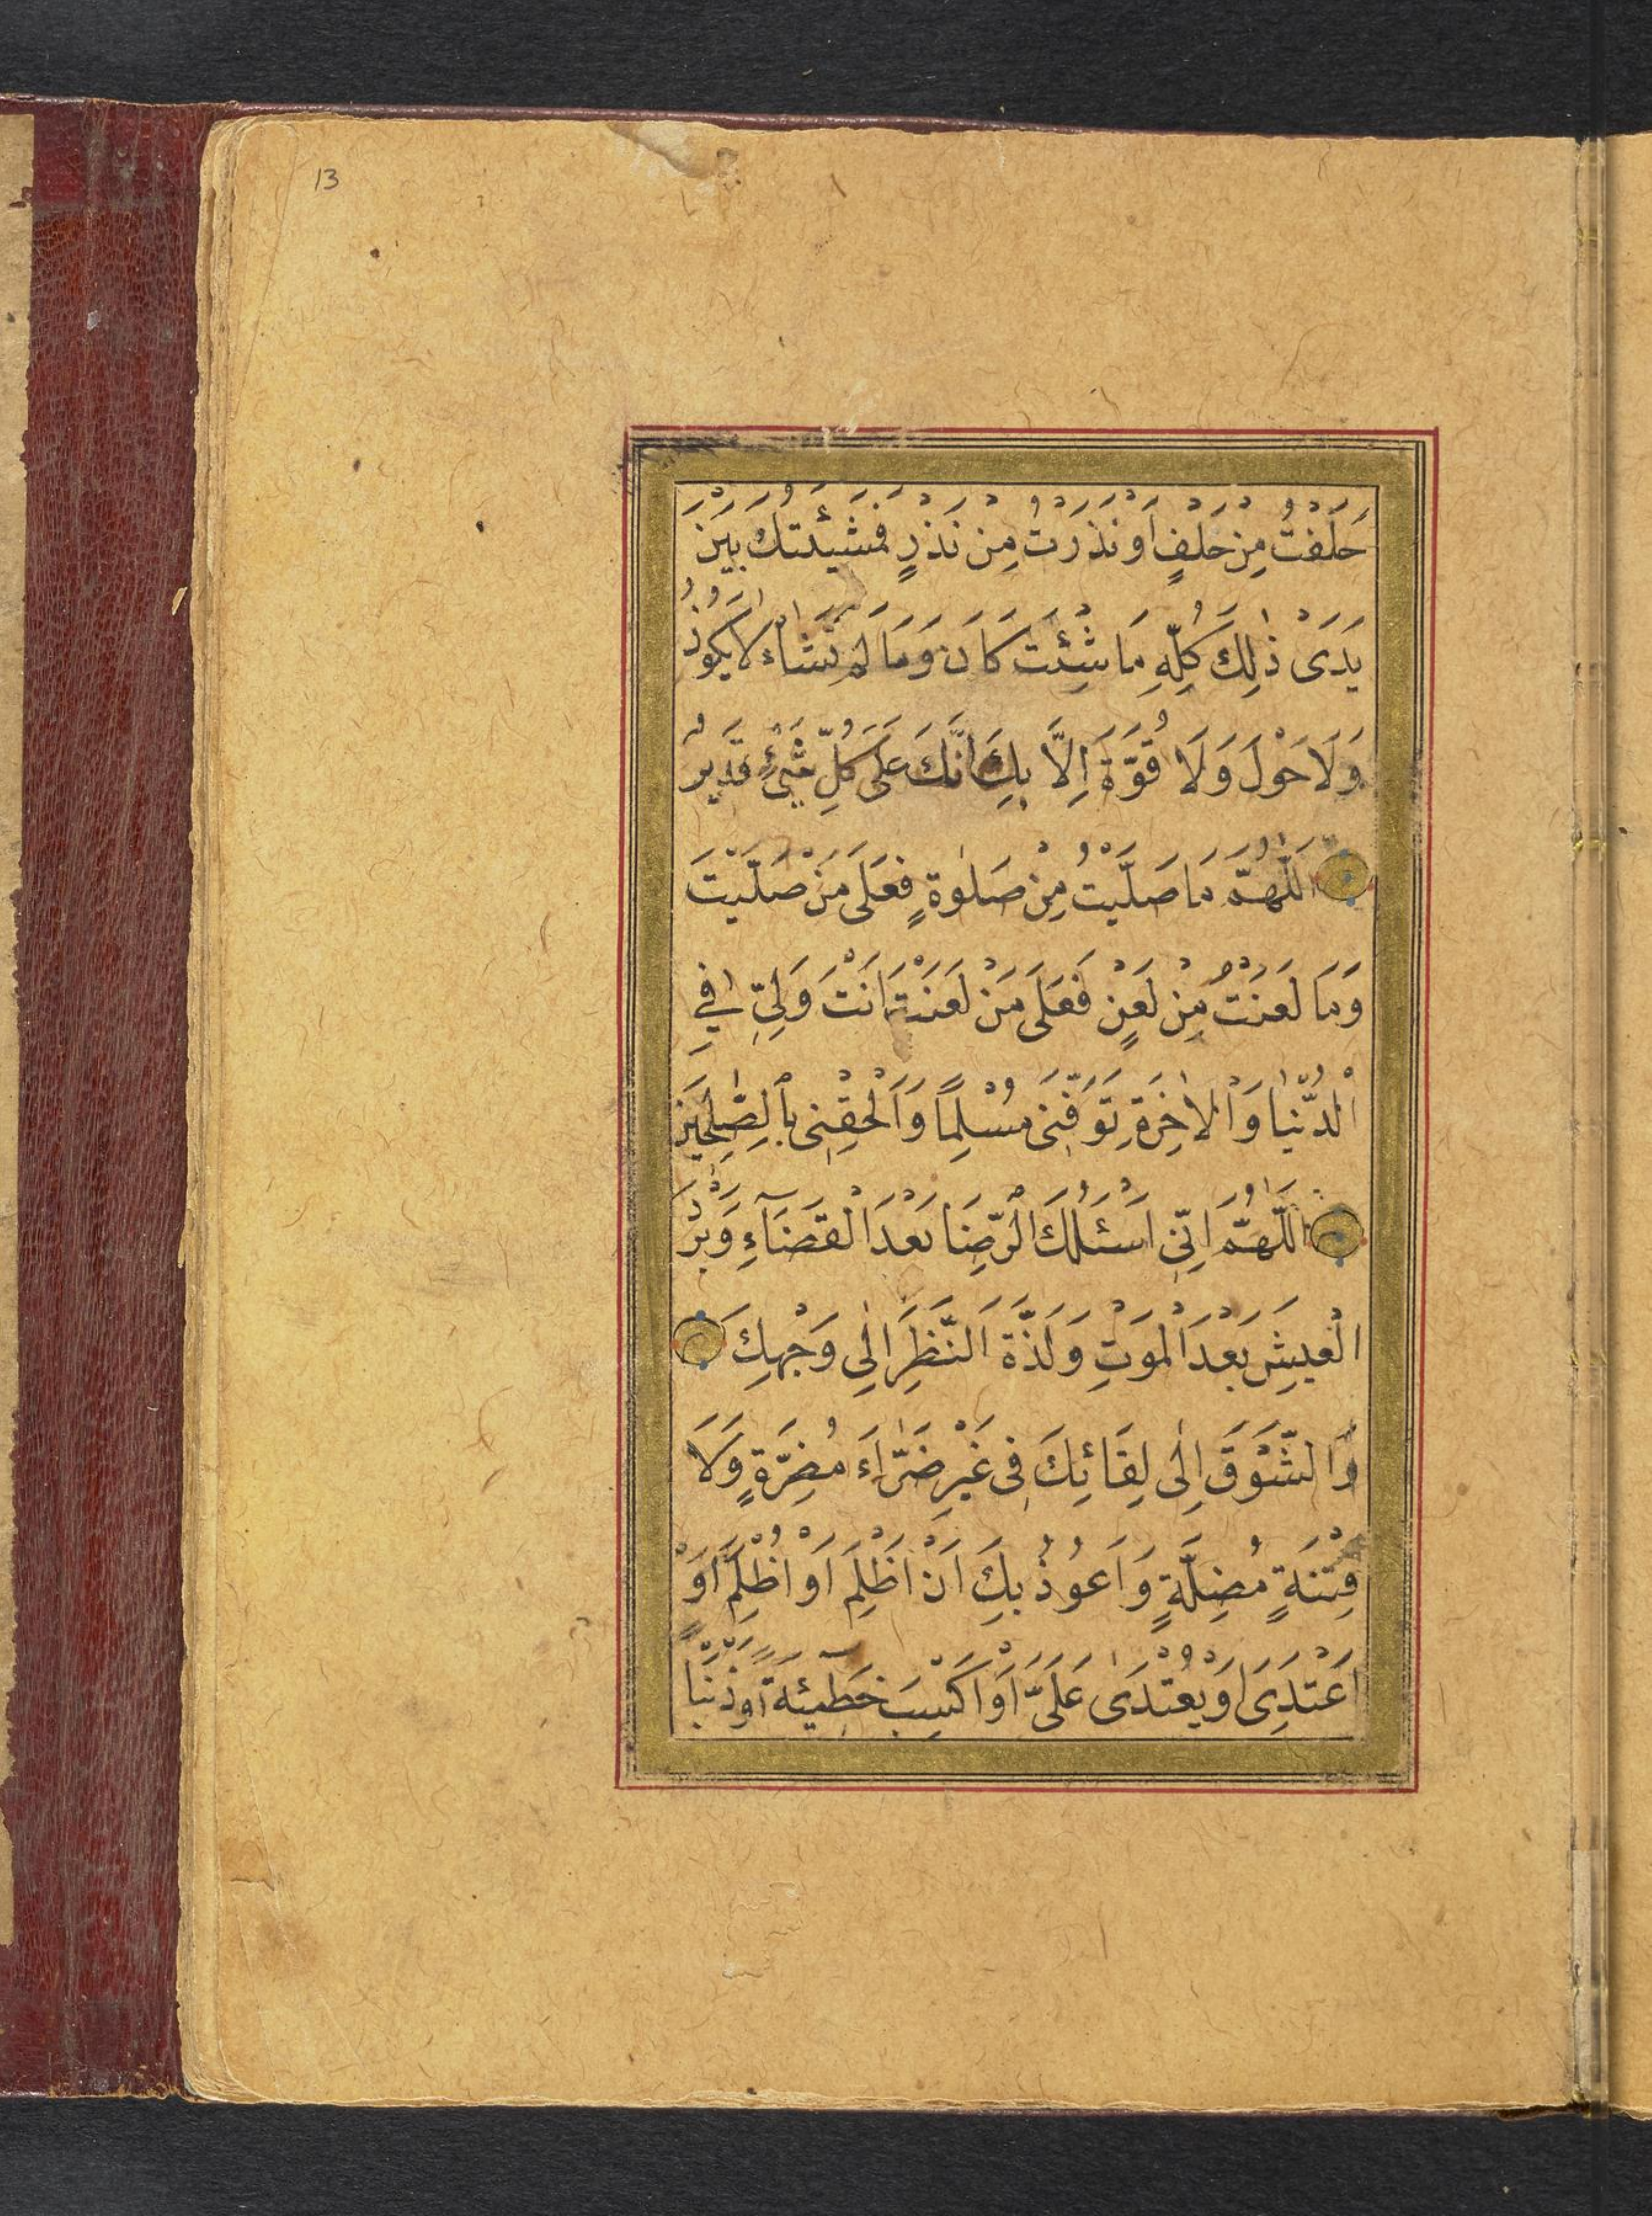 13
حَلَفْتُ مِنْ حَلْفٍ اَوْ نَذَرْتُ مِنْ نَذْرٍ فَمَشِيَّتُكَ بَيْنَ
يَدَىْ ذٰلِكَ كُلِّهِ مَا شِئْتَ كَانَ وَمَا لَمْ تَشَاْء لَا يَكُونُ
وَلَا حَوْلَ وَلَا قُوَّةَ اِلَّا بِكَ اِنَّكَ عَلٰى كُلِّ شَيْءٍ قَدِيرٌ
اَللّٰهُمَّ مَا صَلَّيْتُ مِنْ صَلٰوةٍ فَعَلٰى مَنْ صَلَّيْتَ
وَمَا لَعَنْتُ مِنْ لَعْنٍ فَعَلٰى مَنْ لَعَنْتَ اَنْتَ وَلِيِّ فِي
الْدُّنْيَا وَالْاٰخِرَةِ تَوَفَّنِى مُسْلِمًا وَاَلْحِقْنِى بِالصّٰلِحِينَ
اَللّٰهُمَّ اِنِّى اَسْئَلُكَ الْرِّضَا بَعْدَ الْقَضَآءِ وَبَرْدَ
الْعَيْشِ بَعْدَ الْمَوْتِ وَلَذَّةَ النَّظَرِ اِلٰى وَجْهِكَ
وَالشَّوْقَ اِلٰى لِقَائِكَ فِى غَيْرِ ضَرَّاءَ مُضِرَّةٍ وَلَا
فِتْنَةٍ مُضِلَّةٍ وَاَعُوذُ بِكَ اَنْ اَظْلِمَ اَوْ اُظْلَمَ اَوْ
اَعْتَدِىَ اَوْ يُعْتَدٰى عَلَىَّ اَوْ اَكْسِبَ خَطِيٓئَةً اَوْ ذَنْبًا